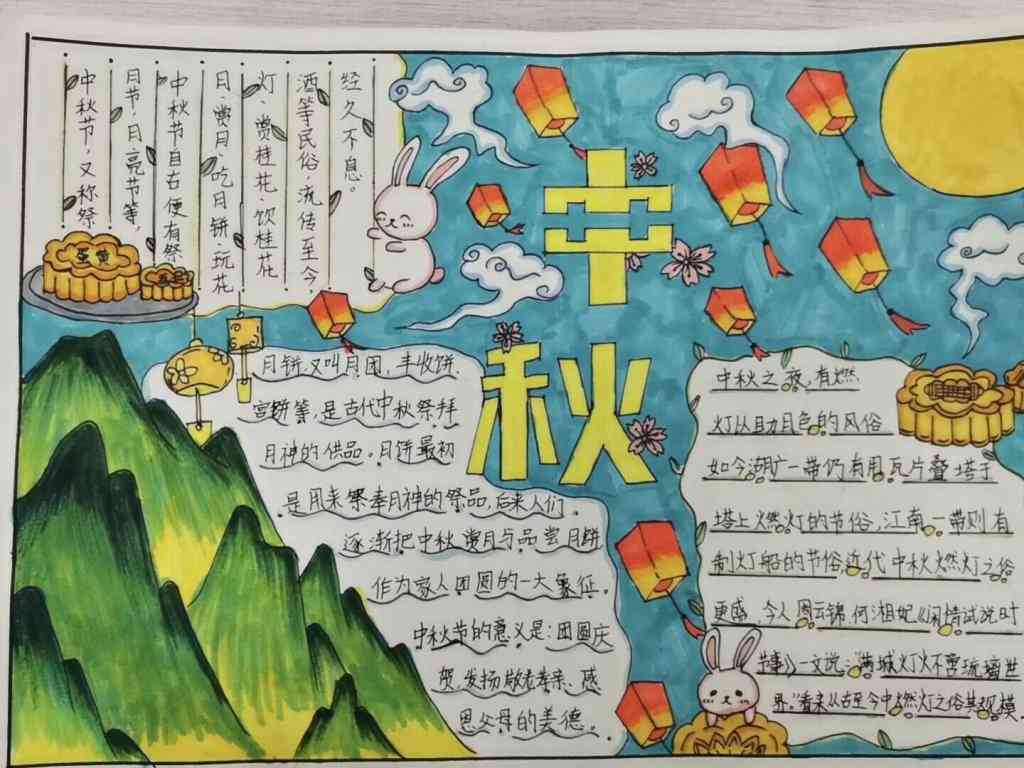 中秋节,又称祭
月节,月亮节等,
中秋节自古便有祭
月、赏月、吃月饼、玩花
灯、赏桂花、饮桂花
酒等民俗,流传至今
经久不息。
蛋黄
中秋
月饼,又叫月团,丰收饼
宫饼等,是古代中秋祭拜
月神的供品。月饼最初
是用来祭奉月神的祭品,后来人们
逐渐把中秋赏月与品尝月饼
作为家人团圆的一大象征。
中秋节的意义是:团圆庆
贺,发扬敬老孝亲、感
恩父母的美德。
中秋之夜,有燃
灯以助月色的风俗
如今湖广一带仍有用瓦片叠塔于
塔上燃灯的节俗,江南一带则有
制灯船的节俗近代中秋燃灯之俗
更盛,今人周云锦,何湘妃《闲情试说时
节事》一文说:满城灯火不啻琉璃世
界。"看来从古至今中燃灯之俗其规模